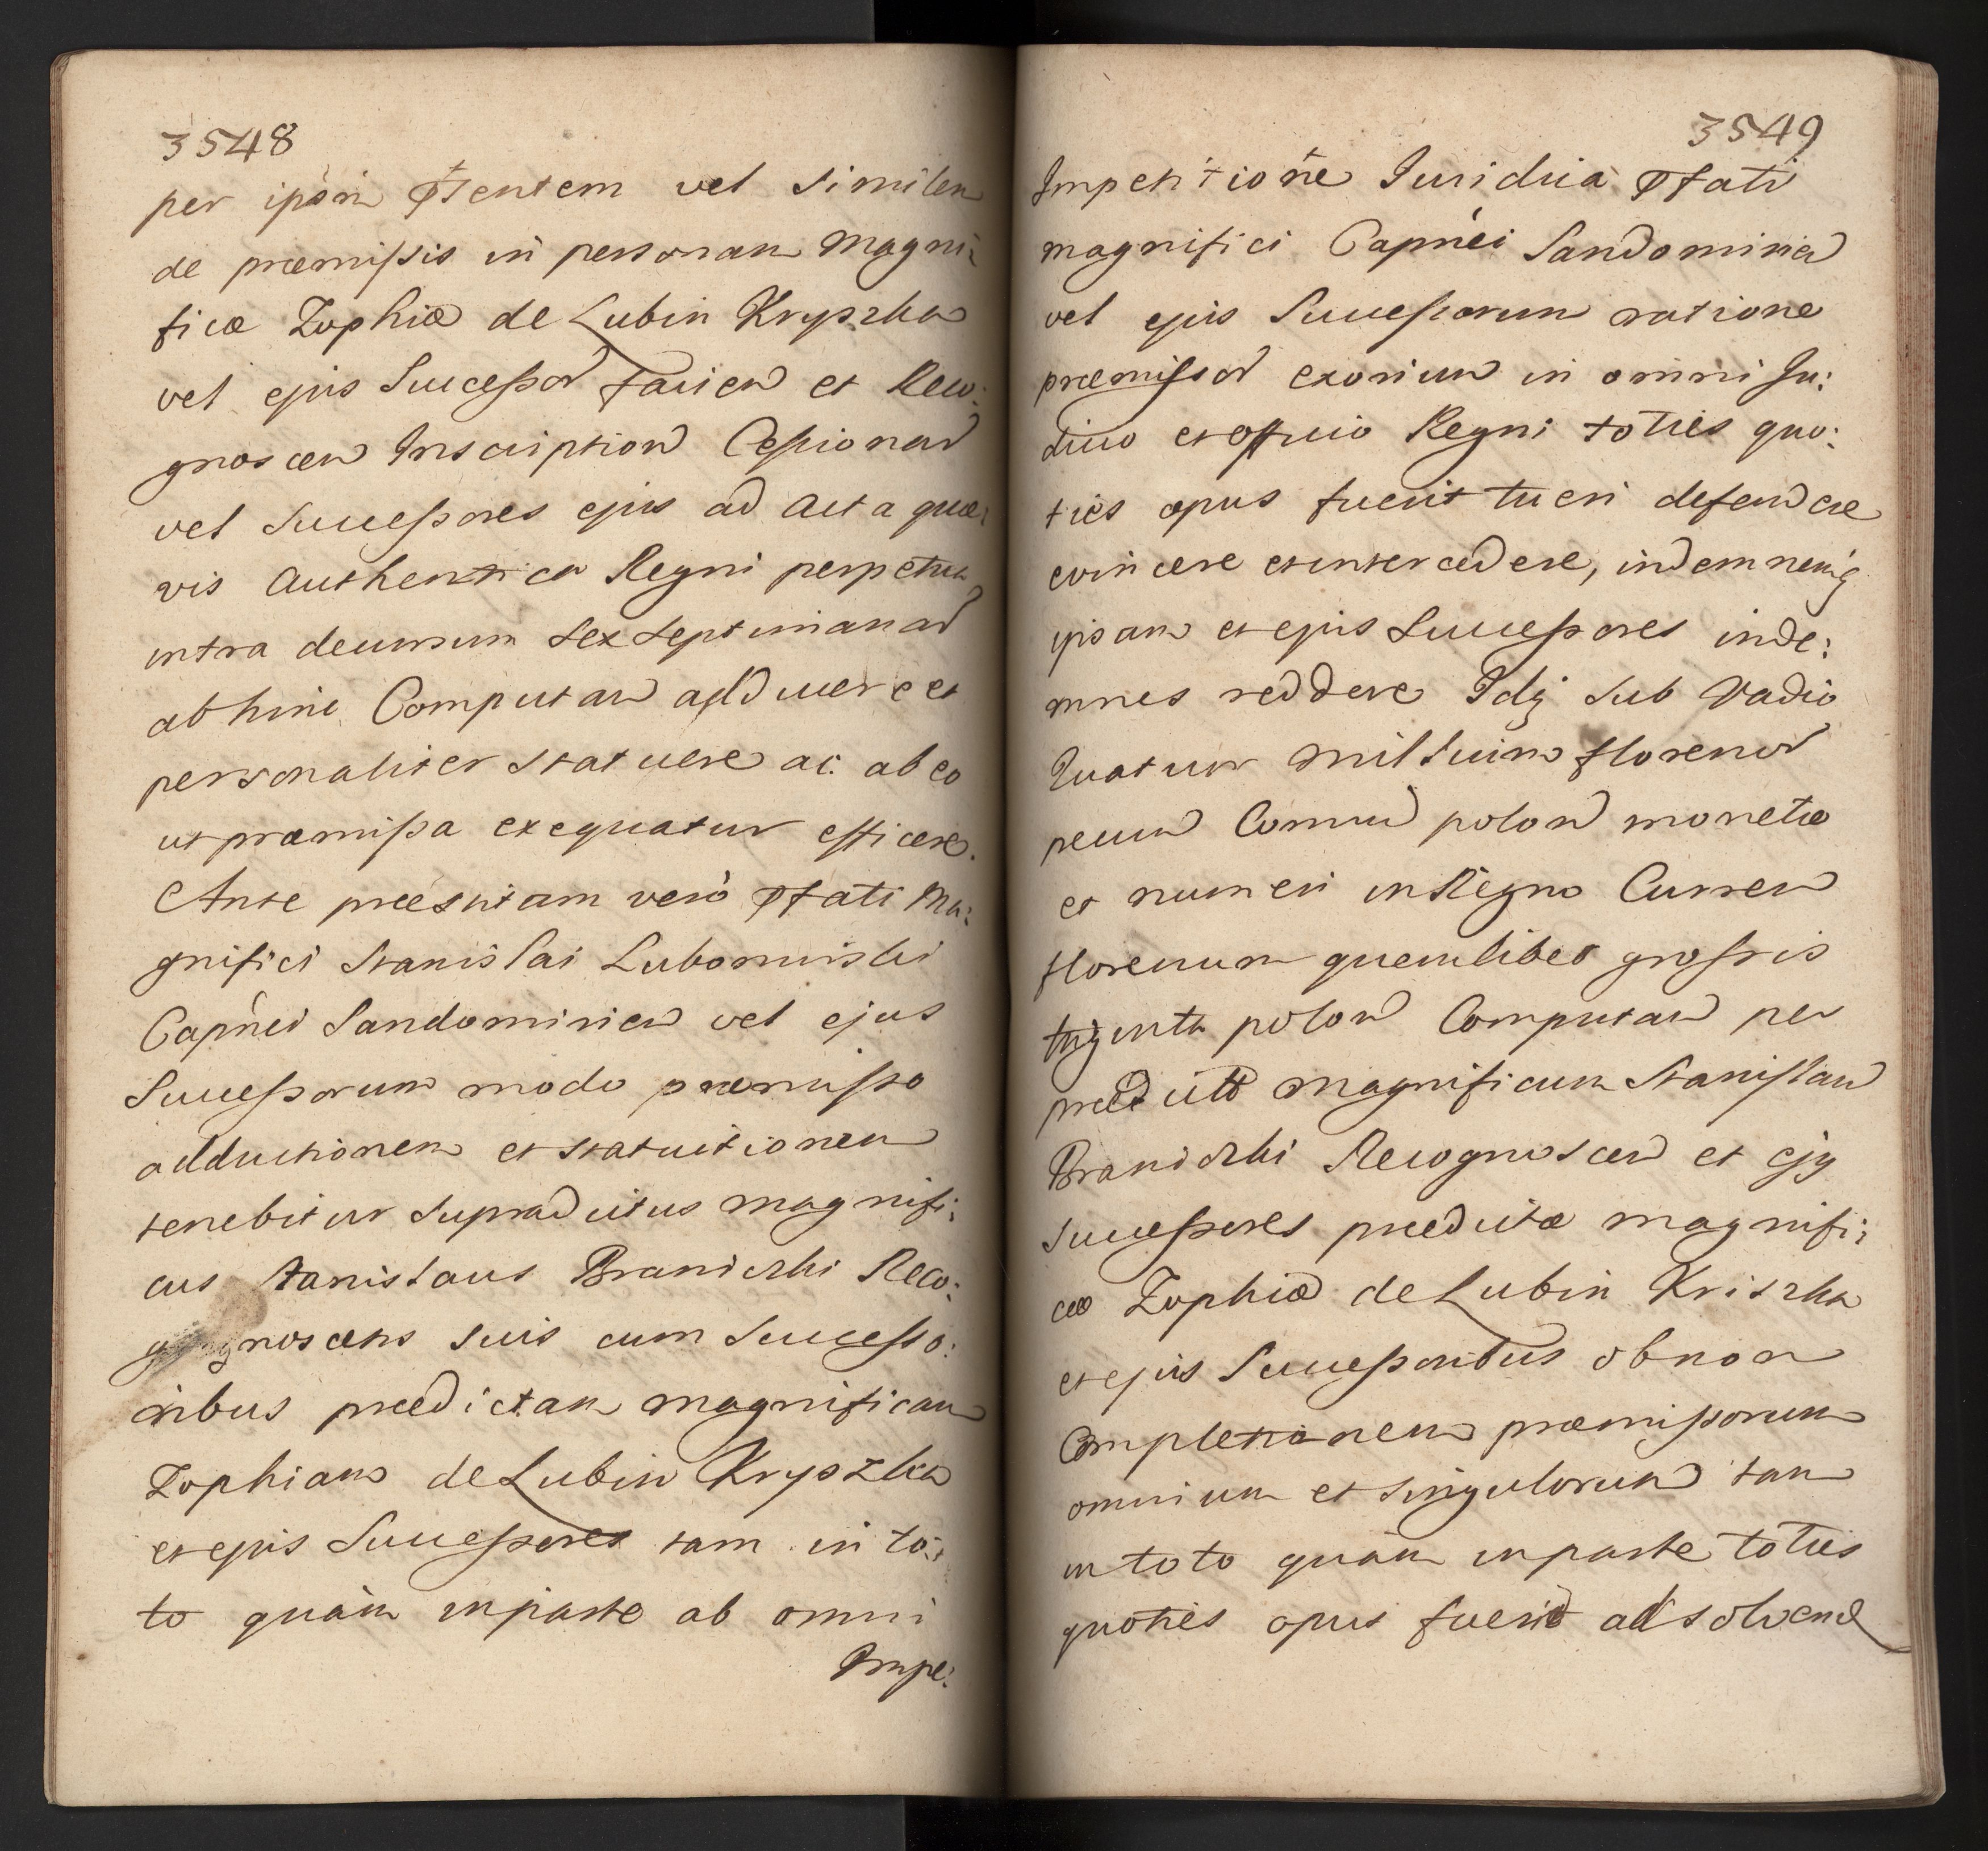 3548
per ipsm̃ p̃sentem vel similem
de præmissis in personam Magni:
ficæ Zophiæ de Lubin Krypzka
vel ejus Successor facien et Reco:
gnoscen Inscription Cessionar
vel Successores ejus ad Acta quæ
vis Authentica Regni perpetua
intra decursum sex septimanar
abhinc Computan adducere et
personaliter statuere ac ab eo
ut præmissa exequatur efficere.
Ante præsentiam verò p̃fati Ma:
gnifici Stanislai Lubomirski
Capñei Sandomirien vel ejus
Successorum modo præmisso
adductionem et statuitionem
tenebitur Supradictus Magnifi:
cus Stanislaus Braniczki Reco:
gnoscens suis cum Successo:
ribus prædictam Magnificam
Zophiam de Lubin Krypzka
et ejus Successores tam in to:
to quàm in parte ab omni
Impe:
3549
Impetitiõne Juridica p̃fati
Magnifici Capñei Sandomirien
vel ejus Successorum ratione
præmissor exorium in omni Ju:
dicio et officio Regni toties quo:
ties opus fuerit tueri defendere
evincere et intercedere, indemnemq
ipsam et ejus Successores inde:
mnes reddere Idq sub Vadio
Quatuor Millium florenor
pecun Commu polon monetæ
et numeri in Regno Curren
florenum quemlibet grossis
triginta polon Computan per
prædictt Magnificum Stanislaum
Braniczki Recognoscen et ejq
Successores prædictæ Magnifi:
cæ Zophiæ de Lubin Kriszka
et ejus Successoribus ob non
Completionem præmissorum
omnium et singulorum tam
in toto quàm in parte toties
quoties opus fuerit adsolvend